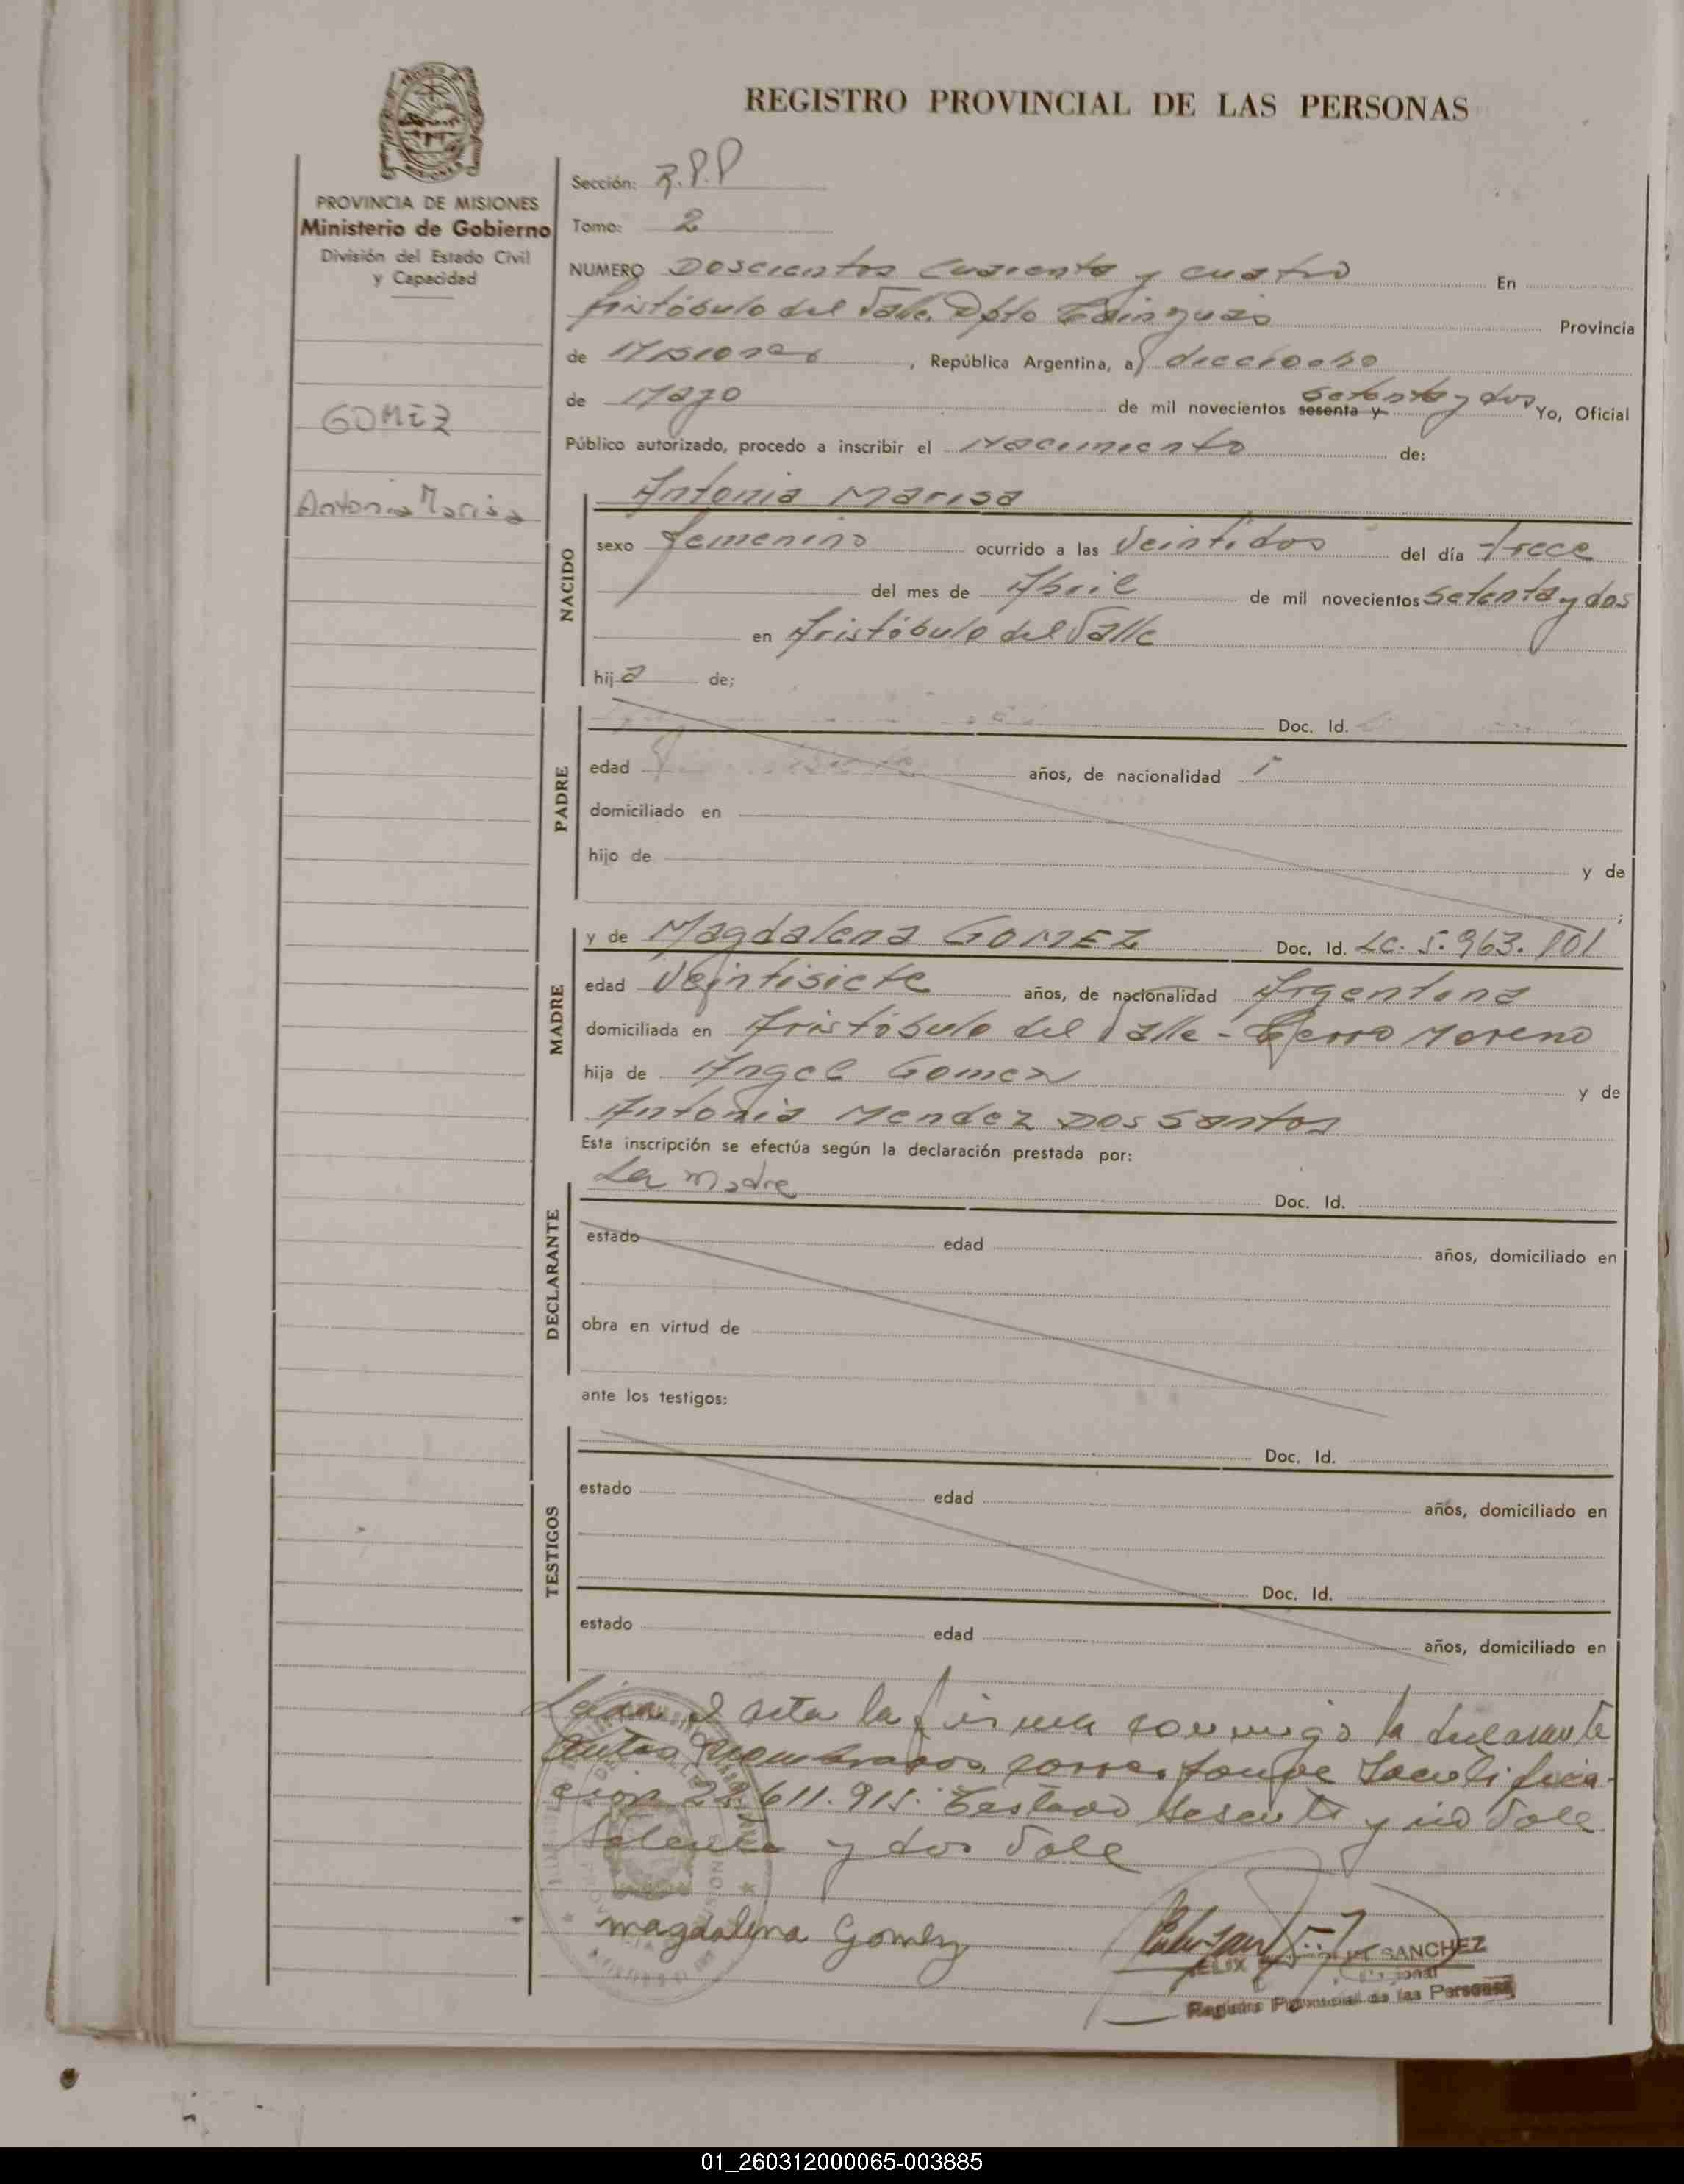 REGISTRO PROVINCIAL DE LAS PERSONAS
PROVINCIA DE MISIONES
Ministerio de Gobierno
División del Estado Civil
y Capacidad
GOMEZ
Antonia Marisa
Sección: R.P.P
Tomo: 2
NUMERO Doscientos Cuarenta y cuatro En
Aristóbulo del Valle. Dpto Cainguas Provincia
de Misiones, República Argentina, a dieciocho
de Mayo de mil novecientos sesenta y setenta y dos Yo, Oficial
Público autorizado, procedo a inscribir el Nacimiento de:
NACIDO
Antonia Marisa
sexo femenino ocurrido a las Veintidos del día trece
del mes de Abril de mil novecientos Setenta y dos
en Aristóbulo del Valle
hija de;
PADRE
Doc. Id.
edad años, de nacionalidad
domiciliado en
hijo de y de
;
MADRE
y de Magdalena GOMEZ Doc. Id. LC. 5.963.101
edad Veintisiete años, de nacionalidad Argentina
domiciliada en Aristóbulo del Valle - Cerro Moreno
hija de Angel Gomez y de
Antonia Mendez Dos Santos
Esta inscripción se efectúa según la declaración prestada por:
DECLARANTE
La madre Doc. Id.
estado edad años, domiciliado en
obra en virtud de
ante los testigos:
TESTIGOS
Doc. Id.
estado edad años, domiciliado en
Doc. Id.
estado edad años, domiciliado en
Leida el acta la firma conmigo la declarante
antes corresponde
cion 22.611.915. Testado sesenta y no Vale
setenta y dos Vale
magdalena Gomez
FELIX SANCHEZ
Registro Provincial de las Personas
01_260312000065-003885